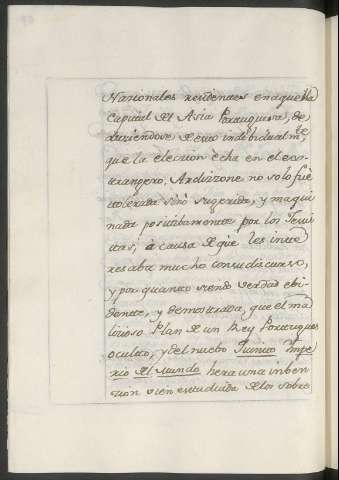 Nacionales residentes en aquella
Capital del Asia Portuguesa, de
duziendose de esto indibidualm.te
que la eleccion écha en el ex
trangero, Ardizzone no solo fué
tolerada sinó sugerida, y maqui
nada positibamente por los Jesui
tas, á causa de que les inte
resaba mucho con su discurso,
y por quanto siendo verdad ebi
dente, y demostrada, que el ma
licioso Plan de un Rey Portugues
oculto, y del nuebo Quinto Impe
rio del Mundo hera una inben
cion vien estudiada de los sobre